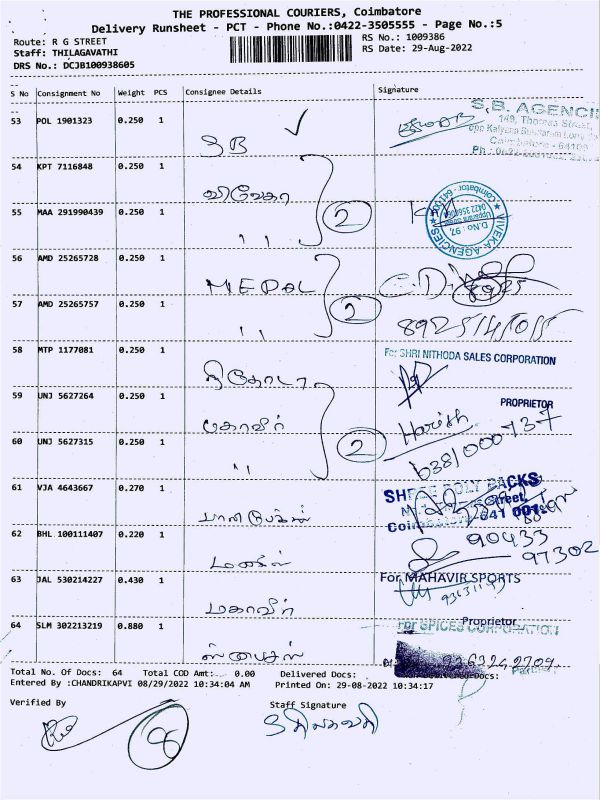 THE PROFESSIONAL COURIERS, Coimbatore
Delivery Runsheet - PCT - Phone No.:0422-3505555 - Page No.:5
Route: R G STREET
RS No.: 1009386
Staff: THILAGAVATHI
RS Date: 29-Aug-2022
DRS No.: DCJB100938605
S No Consignment No Weight PCS Consignee Details Signature
53 POL 1901323 0.250 1
SB
S.B. AGENCI
149, Thomas Street,
54 KPT 7116848 0.250 1
விவேகா
55 MAA 291990439 0.250 1
,, 2
VIVEKA AGENCIES Coimbatore - 641 001 D.No : 97,
56 AMD 25265728 0.250 1
MEPOL
57 AMD 25265757 0.250 1
,, 2
58 MTP 1177081 0.250 1
நிதோடா
For SHRI NITHODA SALES CORPORATION
PROPRIETOR
59 UNJ 5627264 0.250 1
மகாவீர்
Harish
60 UNJ 5627315 0.250 1
,, 2
61 VJA 4643667 0.270 1
SHREE POLY PACKS
Street,
Coimbatore-641 001
62 BHL 100111407 0.220 1
90433
97302
63 JAL 530214227 0.430 1
மகாவீர்
For MAHAVIR SPORTS
Proprietor
64 SLM 302213219 0.880 1
ஸ்பைசஸ்
For SPICES CORPORATION
9363242709
Total No. Of Docs: 64 Total COD Amt: 0.00 Delivered Docs:
Entered By :CHANDRIKAPVI 08/29/2022 10:34:04 AM Printed On: 29-08-2022 10:34:17
Verified By
Staff Signature
திலகவதி